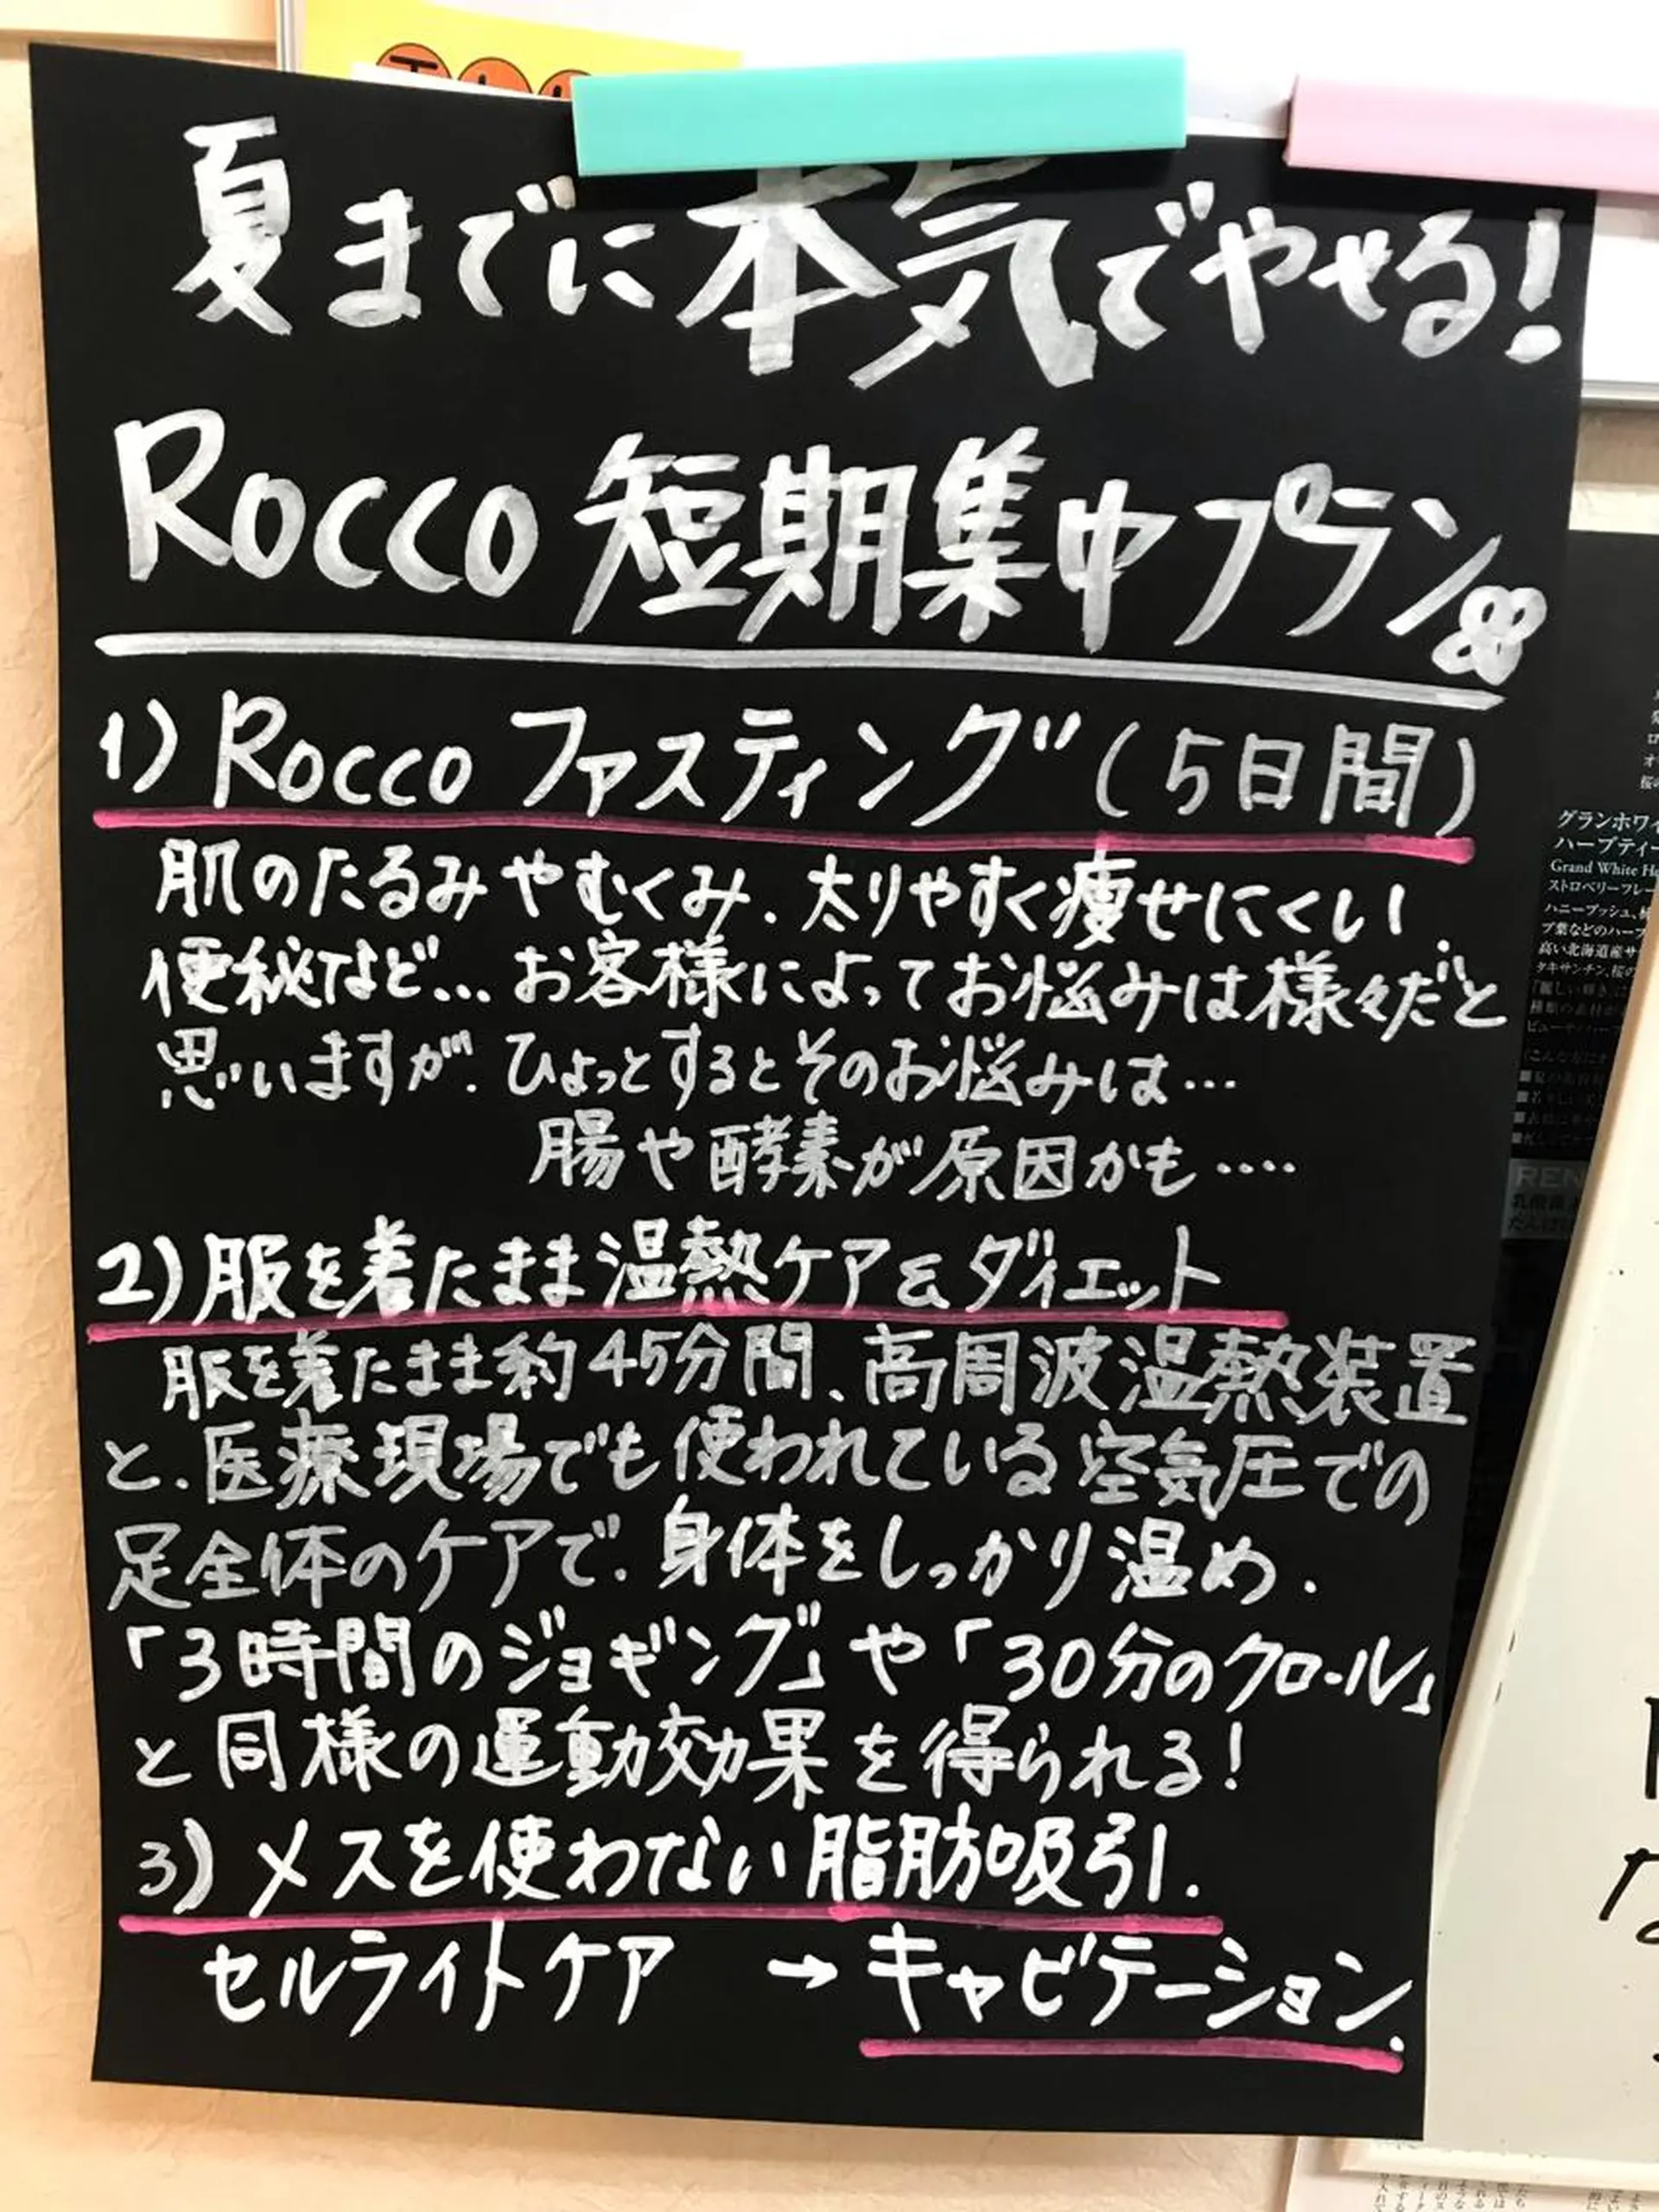 夏までに本気でやせる!
Rocco 短期集中プラン
1) Rocco ファスティング (5日間)
肌のたるみやむくみ、太りやすく痩せにくい、
便秘など… お客様によってお悩みは様々だと
思いますが、ひょっとするとそのお悩みは…
腸や酵素が原因かも‥‥
2) 服を着たまま温熱ケア&ダイエット
服を着たまま約45分間、高周波温熱装置
と、医療現場でも使われている空気圧での
足全体のケアで、身体をしっかり温め、
「3時間のジョギング」や「30分のクロール」
と同様の運動効果を得られる!
3) メスを使わない脂肪吸引、
セルライトケア → キャビテーション、
グランホワイ
ハーブティー
Grand White H
ストロベリーフレー
ハニーブッシュ、
プ葉などのハーフ
高い北海道産サ
タキサンチン、桜の
REN